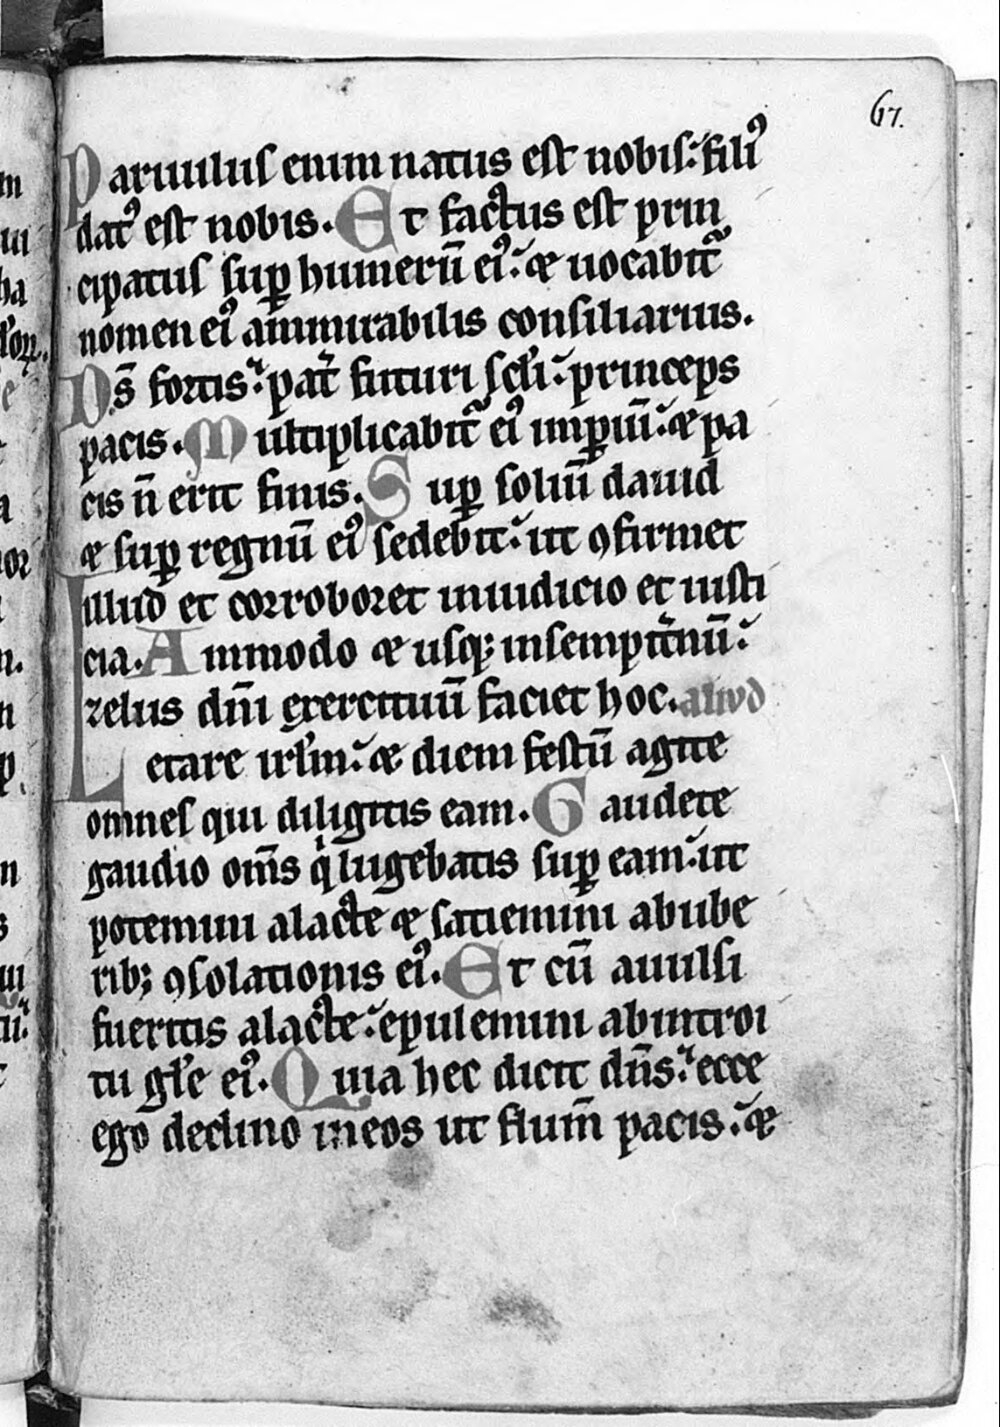 67.
Paruulus enim natus est nobis: fili⁹
dat⁹ est nobis. Et factus est prin
cipatus sup̱ humerū ei⁹: & uocabit᷑
nomen ei⁹ ammirabilis consiliarius.
Ds̄ fortis: pat̄ futuri sc̄li: princeps
pacis. Multiplicabit᷑ ei⁹ imꝑiū: & pa
cis n̄ erit finis. Suꝑ soliū dauid
& suꝑ regnū ei⁹ sedebit: ut ꝯfirmet
illud et corroboret iniudicio et iusti
cia. Ammodo & usq; insempit̄nū:
zelus dn̄i exercituū faciet hoc. aliud
Letare irl̄m: & diem festū agite
omnes qui diligitis eam. Gaudete
gaudio om̄s qͥ lugebatis suꝑ eam: ut
potemini alacte & satiemini abube
rib; ꝯsolationis ei⁹. Et cū auulsi
fueritis alacte: epulemini abintroi
tu gl̄e ei⁹. Quia hec dicit dn̄s: ecce
ego declino ineos ut flum̄ pacis. &